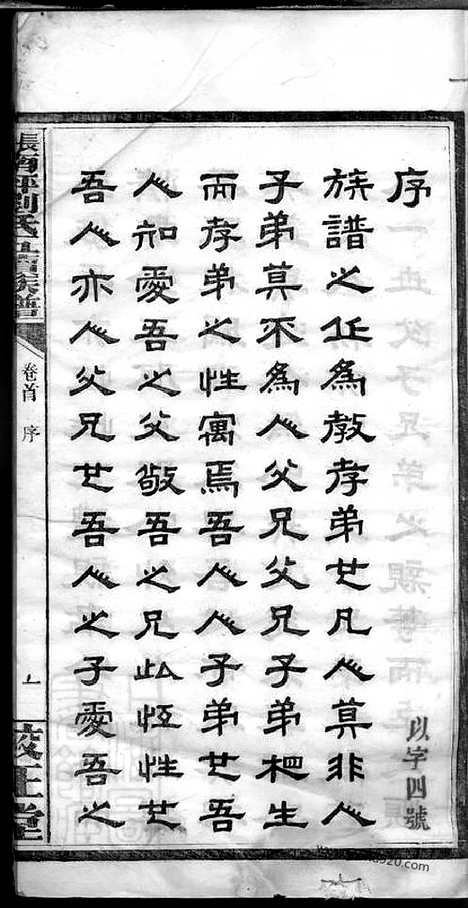 序
族譜之作為教孝弟也凡人莫非人
子弟莫不為人父兄父兄子弟相生
而孝弟之性寓焉吾人人子弟也吾
人知愛吾之父敬吾之兄此恆性也
吾人亦人父兄也吾人之子愛吾之
以字四號
劉氏
族譜
卷首 序